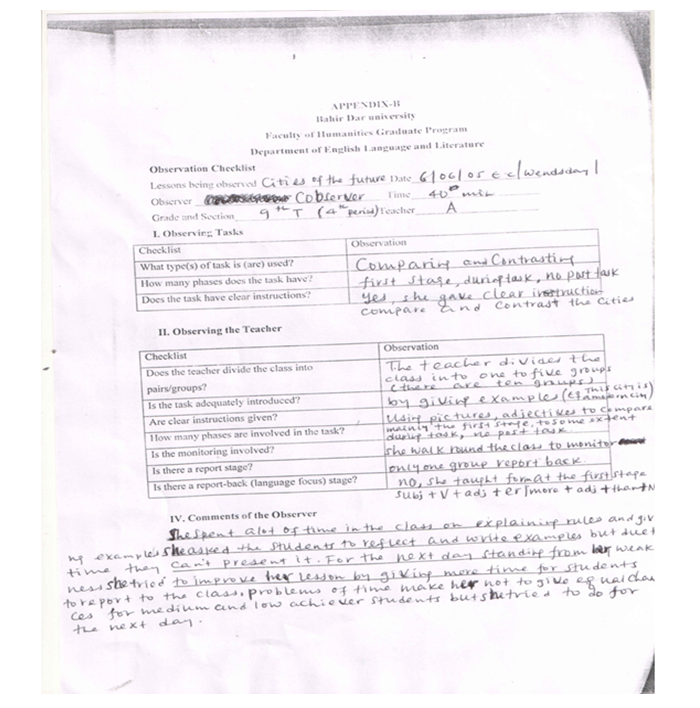 APPENDIX-B
Bahir Dar university
Faculty of Humanities Graduate Program
Department of English Language and Literature
Observation Checklist
Lessons being observed Cities of the future Date 6/06/05 E c/wendsday/
Observer Cobserver Time 40 min
Grade and Section 9th T (4th period) Teacher A
I. Observing Tasks
Checklist Observation
What type(s) of task is (are) used? Comparing and Contrasting
How many phases does the task have? first stage, during task, no post task
Does the task have clear instructions? yes, she gave clear instruction
compare and contrast the cities
II. Observing the Teacher
Checklist Observation
Does the teacher divide the class into The teacher divides the
class into one to five groups
pairs/groups? (there are ten groups)
Is the task adequately introduced? by giving examples (This city is
Are clear instructions given? Using pictures, adjectives to compare
How many phases are involved in the task? mainly the first stage, to some extent
during task, no post task
Is the monitoring involved? she walk round the class to monitor
Is there a report stage? only one group report back
Is there a report-back (language focus) stage? no, she taught form at the first stage
Subj + V + adj + er/more + adj + than + N
IV. Comments of the Observer
She spent alot of time in the class on explaining rules and giv
ng examples she asked the students to reflect and write examples but due t
time they can't present it. For the next day standing from her weak
ness she tried to improve her lesson by giving more time for students
to report to the class. problems of time make her not to give equal chan
ces for medium and low achiever students but she tried to do for
the next day.